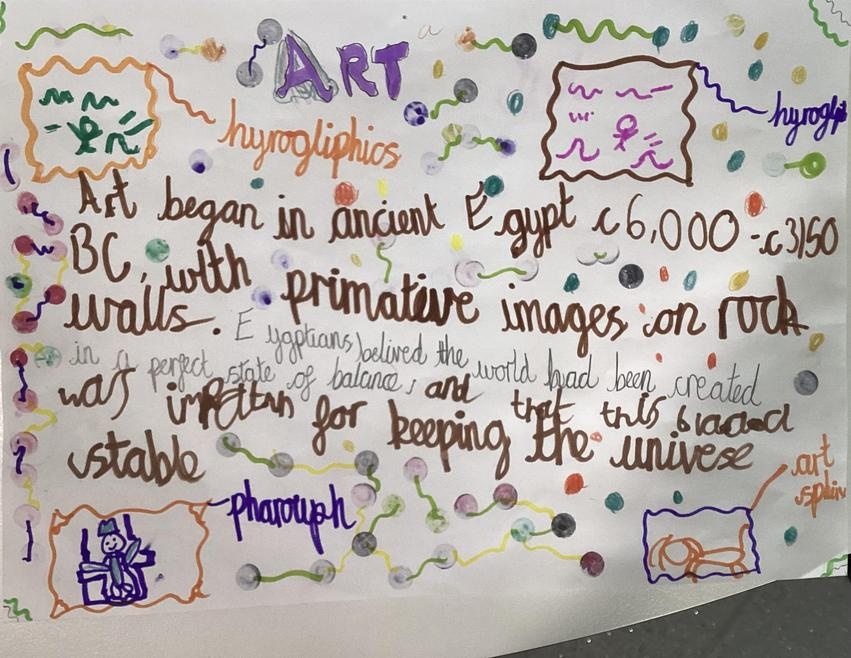 ART
hyrogliphics
hyroglip
Art began in ancient Egypt c6,000 - c3150
BC, with primative images on rock
walls.
Eygptians belived the world had been created
in a perfect state of balance, and that this
was for keeping the univese
stable
pharouph
art
sphin